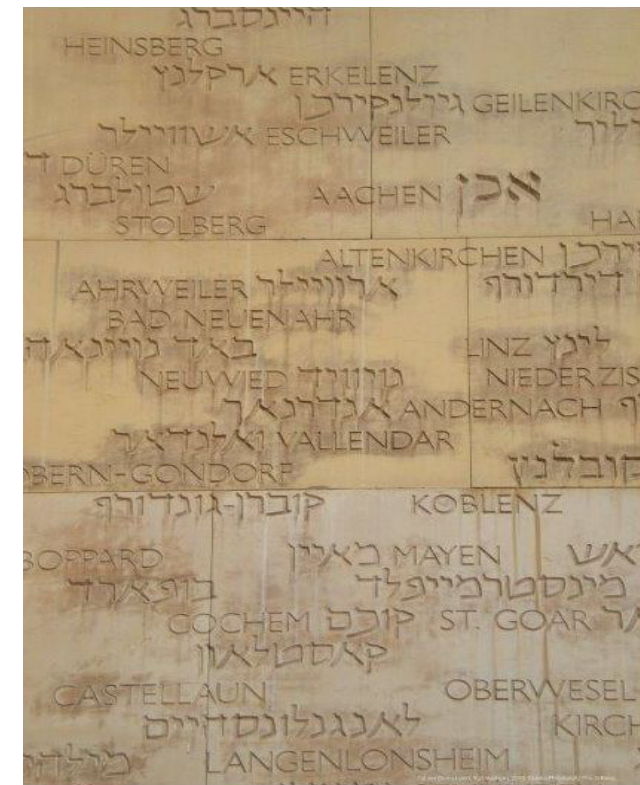 היינסברג
HEINSBERG
ארקלנץ ERKELENZ
גיילנקירכן GEILENKIRC
אשווײלר ESCHWEILER
DÜREN
שטולברג AACHEN אכן
STOLBERG HA
ALTENKIRCHEN
AHRWEILER ארווײלר דירדורף
BAD NEUENAHR
באד נוײנאה LINZ לינץ
NEUWIED נויוויד NIEDERZIS
אנדרנאך ANDERNACH
ואלנדאר VALLENDAR
קובלנץ
OBERN-GONDORF
קוברן-גונדורף KOBLENZ
BOPPARD מאיין MAYEN
בופארד מינסטרמייפלד
COCHEM קוכם ST. GOAR
קאסטלאון
CASTELLAUN OBERWESEL
לאנגנלונסהיים KIRCH
LANGENLONSHEIM